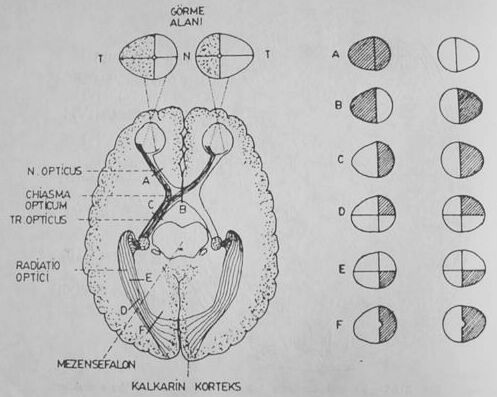 GÖRME
ALANI
T
N
T
N. OPTİCUS
A
CHİASMA
OPTİCUM
C
B
TR.OPTİCUS
RADİATİO
OPTİCİ
E
D
F
MEZENSEFALON
KALKARİN KORTEKS
A
B
C
D
E
F